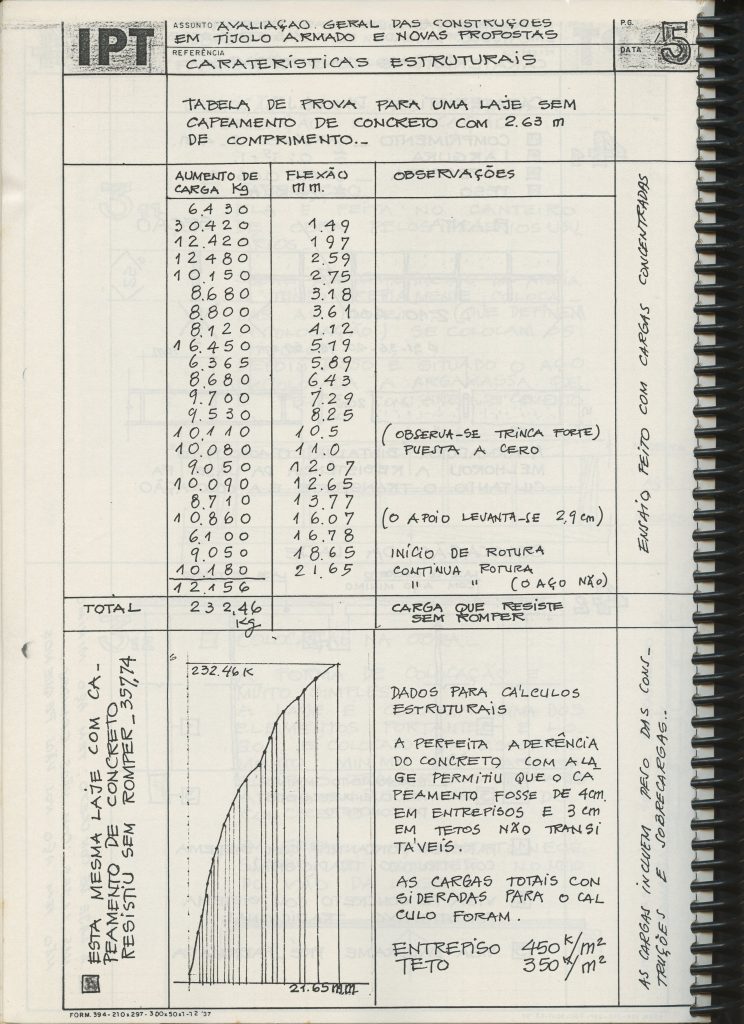 IPT
ASSUNTO AVALIAÇÃO GERAL DAS CONSTRUÇÕES
EM TIJOLO ARMADO E NOVAS PROPOSTAS
REFERÊNCIA
CARATERÍSTICAS ESTRUTURAIS
PG.
DATA
5
TABELA DE PROVA PARA UMA LAJE SEM
CAPEAMENTO DE CONCRETO COM 2.63 m
DE COMPRIMENTO._
AUMENTO DE CARGA Kg FLEXÃO m m. OBSERVAÇÕES
6.430
30.420 1.49
12.420 197
12.480 2.59
10.150 2.75
8.680 3.18
8.800 3.61
8.120 4.12
16.450 5.19
6.365 5.89
8.680 6.43
9.700 7.29
9.530 8.25
10.110 10.5 (OBSERVA-SE TRINCA FORTE)
10.080 11.0 PUESTA A CERO
9.050 12.07
10.090 12.65
8.710 13.77
10.860 16.07 (O APOIO LEVANTA-SE 2,9 cm)
6.100 16.78
9.050 18.65 INÍCIO DE ROTURA
10.180 21.65 CONTINUA ROTURA
12.156 " " (O AÇO NÃO)
TOTAL 232,46 Kg CARGA QUE RESISTE
SEM ROMPER
ENSAIO FEITO COM CARGAS CONCENTRADAS
ESTA MESMA LAJE COM CA-
PEAMENTO DE CONCRETO
RESISTIU SEM ROMPER_357,74
232.46 K
21.65 mm
DADOS PARA CÁLCULOS
ESTRUTURAIS
A PERFEITA ADERÊNCIA
DO CONCRETO COM A LA
GE PERMITIU QUE O CA
PEAMENTO FOSSE DE 4cm.
EM ENTREPISOS E 3 cm
EM TETOS NÃO TRANSI
TÁVEIS.
AS CARGAS TOTAIS CON
SIDERADAS PARA O CAL
CULO FORAM.
ENTREPISO 450 K/m²
TETO 350 K/m²
AS CARGAS INCLUEM PESO DAS CONS_
TRUÇÕES E SOBRECARGAS..
FORM. 394-210x297-300x50x1-12'37